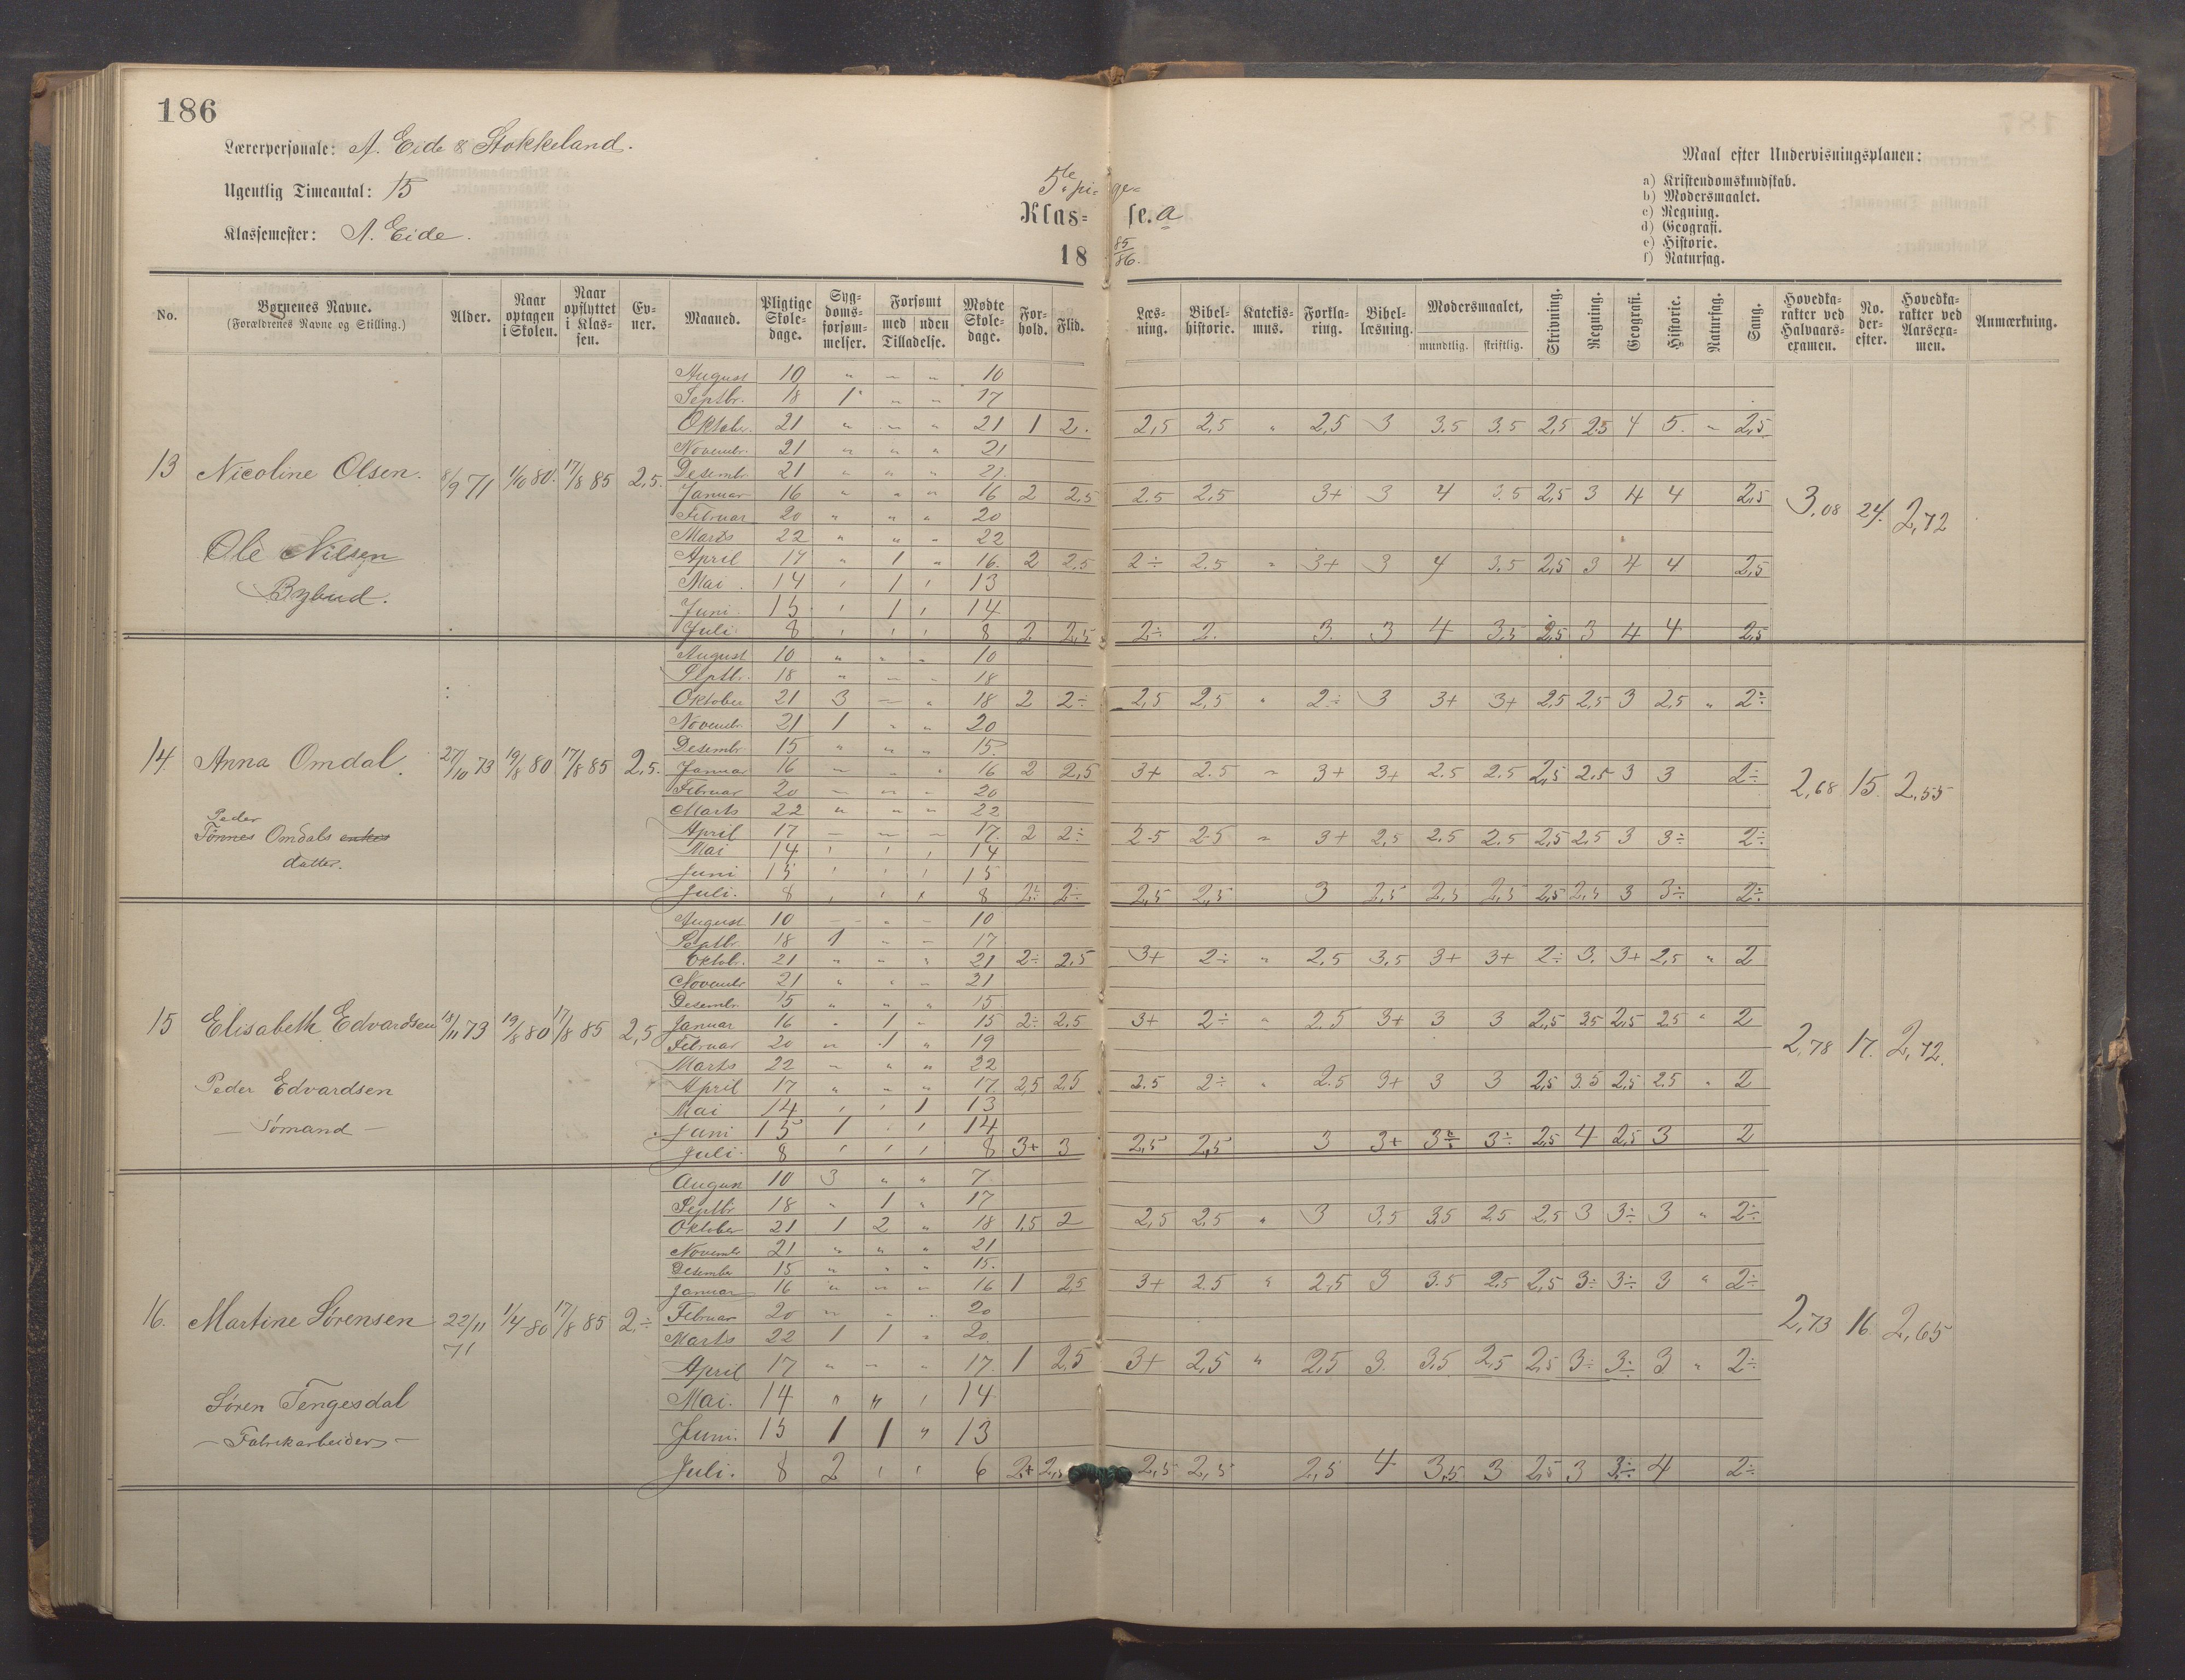 186
Lærerpersonale: A. Eide & Stokkeland.
Ugentlig Timeantal: 15
Klassemester: A. Eide.
5te pi- ge-
Klas- se. a
18 85/86.
Maal efter Undervisningsplanen:
a) Kristendomskundskab.
b) Modersmaalet.
c) Regning.
d) Geografi.
e) Historie.
f) Naturfag.
No. Børnenes Navne. (Forældrenes Navne og Stilling.) Alder. Naar optagen i Skolen. Naar opflyttet i Klas- sen. Ev- ner. Maaned. Pligtige Skole- dage. Syg- doms- forsøm- melser. Forsømt med uden Tilladelse. Mødte Skole- dage. For- hold. Flid. Læs- ning. Bibel- historie. Katekis- mus. Forkla- ring. Bibel- læsning. Modersmaalet, mundtlig. skriftlig. Skrivning. Regning. Geografi. Historie. Naturfag. Sang. Hovedka- rakter ved Halvaars- examen. No. der- efter. Hovedka- rakter ved Aarsexa- men. Anmærkning.
August 10 " " " 10
Septbr. 18 1 " " 17
Oktober. 21 " " " 21 1 2. 2,5 2,5 " 2,5 3 3.5 3.5 2,5 2.5 4 5. " 2,5
Novembr. 21 " " " 21
13 Nicoline Olsen. 8/9 71 1/10 80. 17/8 85 2,5. Desembr. 21 " " " 21.
Januar 16 " " " 16 2 2,5 2.5 2,5 3+ 3 4 3.5 2,5 3 4 4 2,5 3,08 24. 2,72
Februar 20 " " " 20
Marts 22 " " " 22
Ole Nilsen April 17 " 1 " 16. 2 2,5 2÷ 2.5 " 3+ 3 4 3.5 2,5 3 4 4 2,5
Bybud. Mai 14 ' 1 ' 13
Juni 15 ' 1 ' 14
Juli 8 ' ' ' 8 2 2,5 2÷ 2. 3. 3 4 3,5 2,5 3 4 4 2,5
August 10 " " " 10
Septbr. 18 " " " 18
Oktober 21 3 " " 18 2 2÷ 2,5 2,5 " 2÷ 3 3+ 3+ 2,5 2,5 3 2,5 " 2÷
Novembr. 21 1 " " 20
Desembr 15 " " " 15.
14. Anna Omdal. 27/10 73 19/8 80 17/8 85 2,5. Januar 16 " " " 16 2 2,5 3+ 2.5 " 3+ 3+ 2.5 2.5 2,5 2.5 3 3 2÷ 2,68 15. 2,55
Februar 20 " " " 20
Marts 22 " " " 22
Peder
Tönnes Omdals enkes April 17 " " " 17. 2 2÷ 2-5 2-5 " 3+ 2,5 2.5 2.5 2,5 2,5 3 3÷ 2÷
Mai 14 ' ' ' 14
datter. Juni 15 ' ' ' 15
Juli. 8 ' ' ' 8 2÷ 2÷ 2,5 2,5 3 2,5 2,5 2,5 2,5 2,5 3 3÷ 2÷
August 10 " " " 10
Septbr. 18 1 " " 17
Oktobr. 21 " " " 21 2÷ 2.5 3+ 2÷ " 2,5 3,5 3+ 3+ 2÷ 3. 3+ 2,5 " 2
Novembr 21 " " " 21
Desembr. 15 " " " 15
15 Elisabeth Edvardsen 18/11 73 19/8 80 17/8 85 2,5 Januar 16 " 1 " 15 2÷ 2,5 3+ 2÷ " 2.5 3+ 3 3 2,5 3.5 2,5 2.5 " 2 2,78 17. 2,72.
Februar 20 " 1 " 19
Marts 22 " " " 22
Peder Edvardsen April 17 " " " 17. 2,5 2,5 2.5 2÷ " 2.5 3+ 3 3 2,5 3.5 2,5 2.5 " 2
Mai 14 ' ' 1 13
— Sømand — Juni 15 1 ' ' 14
Juli. 8 ' ' ' 8 3+ 3 2,5 2,5 3 3+ 3÷ 3÷ 2,5 4 2,5 3 2
August 10 3 " " 7.
Septbr 18 " 1 " 17
Oktober 21 1 2 " 18 1,5 2 2,5 2,5 " 3 3,5 3,5 2,5 2,5 3 3÷ 3 " 2÷
Novembr 21 " " " 21
Desember 15 " " " 15.
Januar 16 " " " 16 1 2,5 3+ 2.5 " 2,5 3 3.5 2,5 2,5 3÷ 3÷ 3 " 2÷
16. Martine Sørensen 22/11 71 1/4 80 17/8 85 2.÷ Februar 20 " " " 20 2,73 16. 2,65
Marts 22 1 1 " 20.
April 17 " " " 17. 1 2,5 3+ 2,5 " 2,5 3. 3,5 2,5 2,5 3÷ 3÷ 3 " 2÷
Søren Tengesdal Mai. 14 " " ' 14
— Fabrikarbeider — Juni. 15 1 1 " 13
Juli. 8 2 ' ' 6 2+ 2,5 2,5 2,5 2,5 4 3,5 3 2,5 3 3÷ 4 2÷